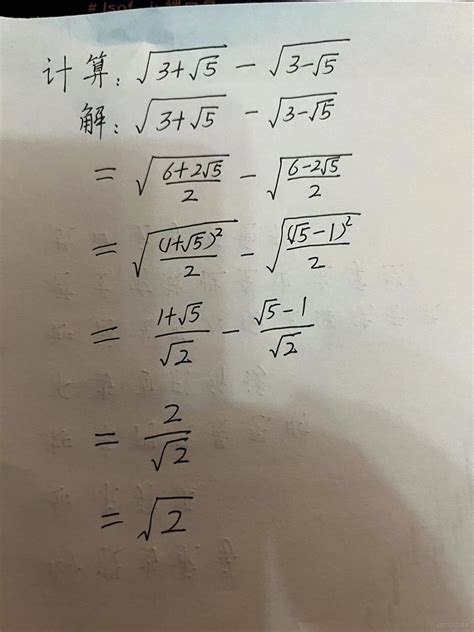 计算: √(3+√5) - √(3-√5)
解: √(3+√5) - √(3-√5)
= √((6+2√5)/2) - √((6-2√5)/2)
= √((1+√5)²/2) - √((√5-1)²/2)
= (1+√5)/√2 - (√5-1)/√2
= 2/√2
= √2